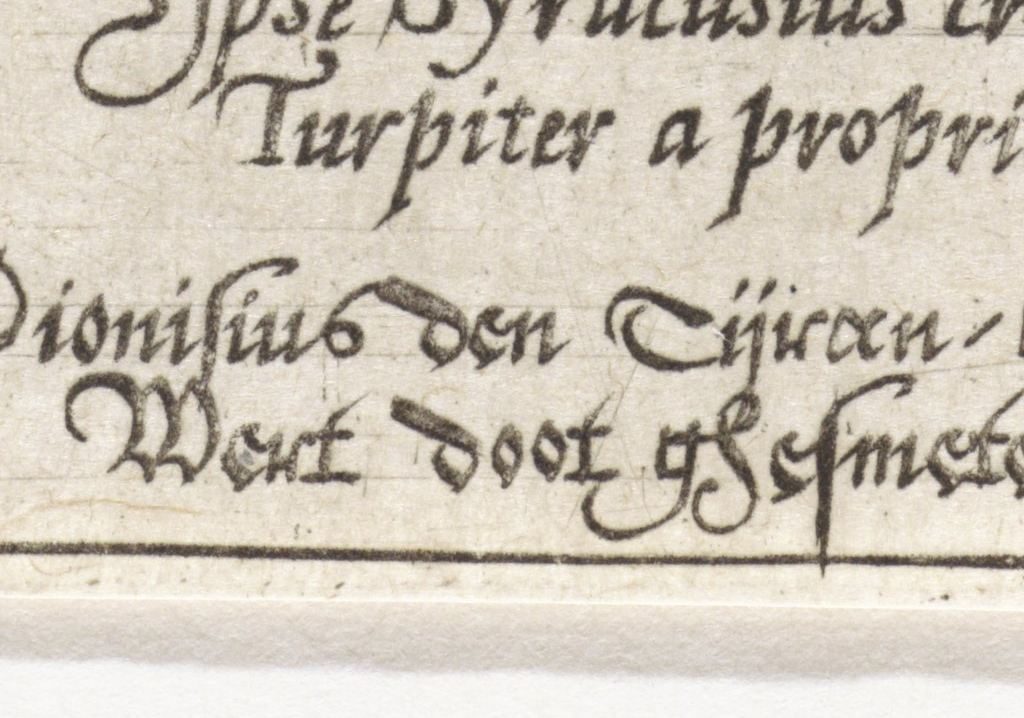 Ipse Syracusius cr
Turpiter a propri
Dionisius den Tijran,
Wert doot ghesmete